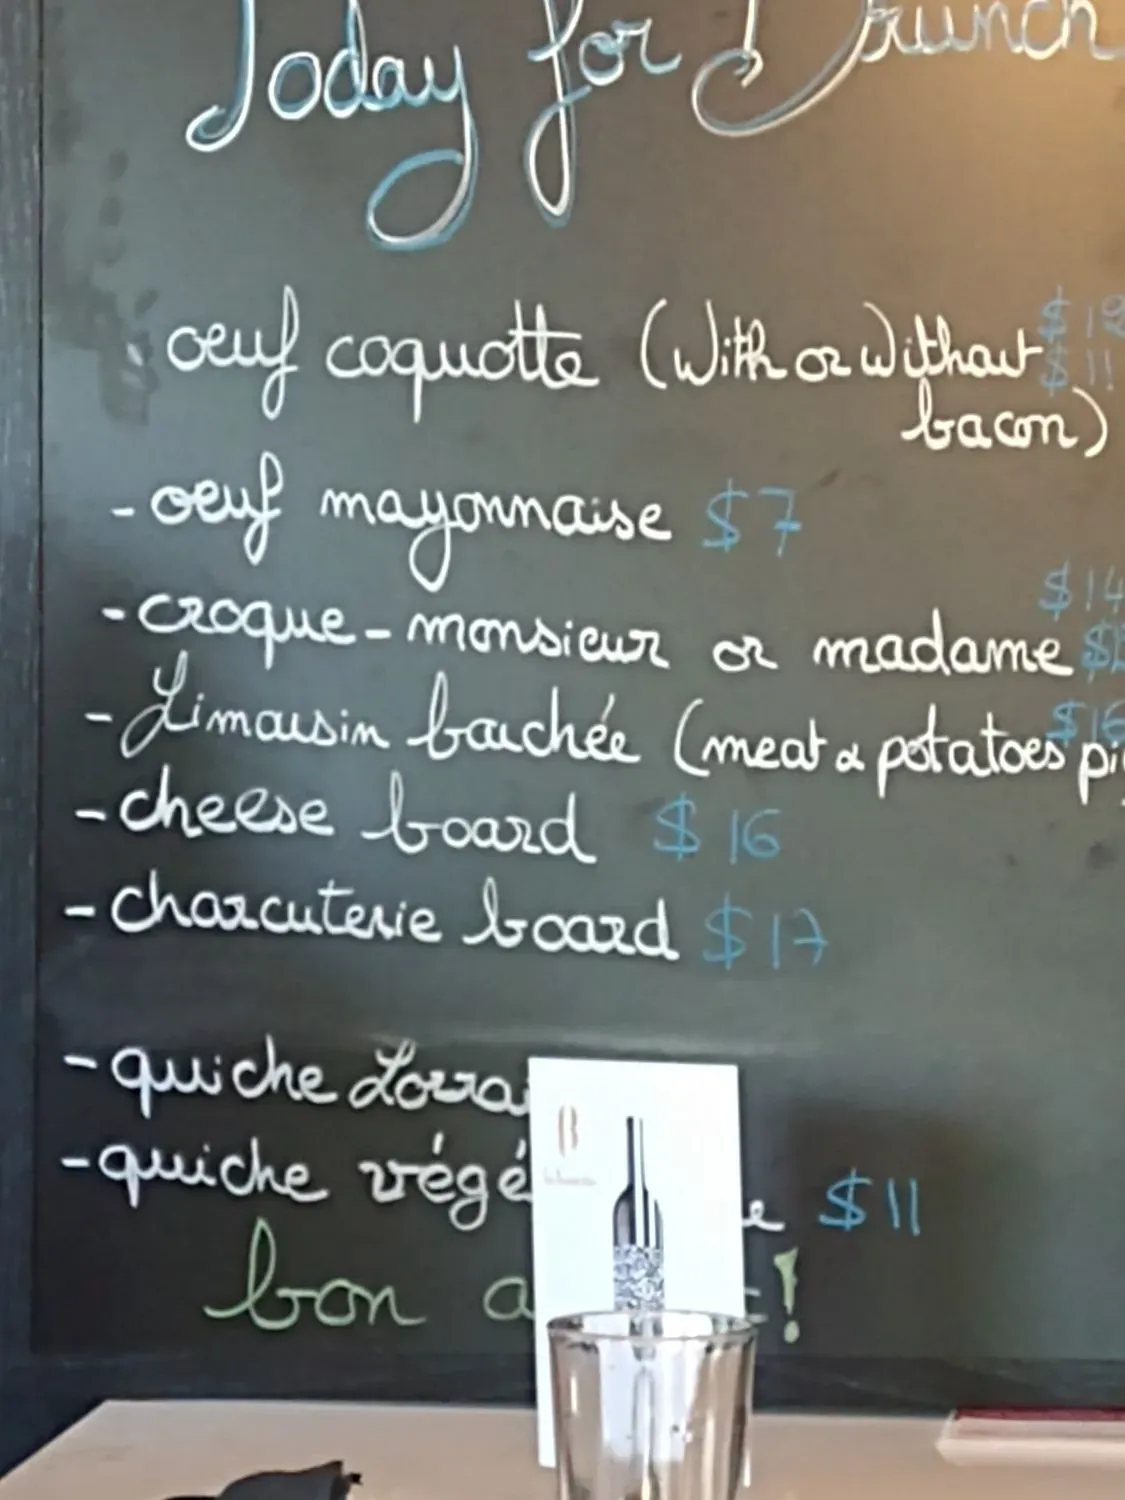 Today for Brunch
oeuf coquotte (With or Without $12
$11
bacon)
- oeuf mayonnaise $7
$14
- croque-monsieur or madame
- Limousin bouchée (meat & potatoes $16
- cheese board $16
- charcuterie board $17
- quiche
- quiche $11
bon